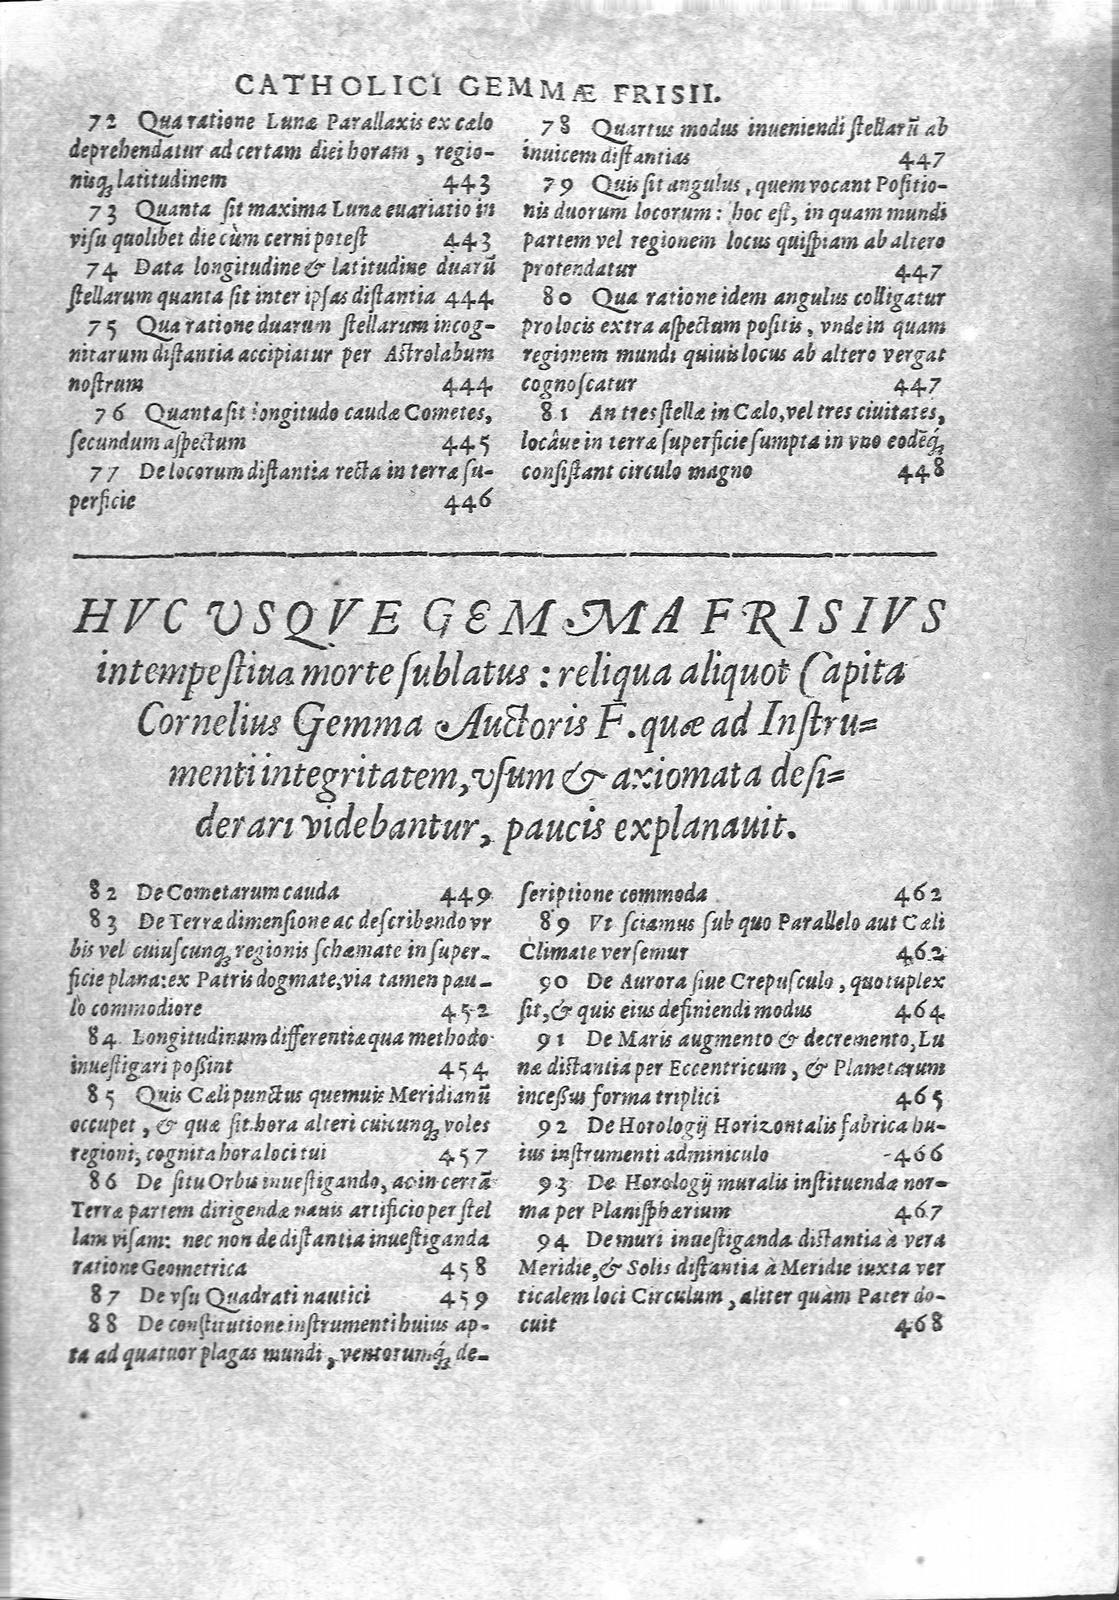 CATHOLICI GEMMÆ FRISII.
72 Qua ratione Lunæ Parallaxis ex cælo
deprehendatur ad certam diei horam, regio-
nisq́; latitudinem 443
73 Quanta sit maxima Lunæ euariatio in
visu quolibet die cùm cerni potest 443
74 Data longitudine & latitudine duarū
stellarum quanta sit inter ipsas distantia 444
75 Qua ratione duarum stellarum incog-
nitarum distantia accipiatur per Astrolabum
nostrum 444
76 Quanta sit longitudo caudæ Cometes,
secundum aspectum 445
77 De locorum distantia recta in terræ su-
perficie 446
78 Quartus modus inueniendi stellarū ab
inuicem distantias 447
79 Quis sit angulus, quem vocant Positio-
nis duorum locorum: hoc est, in quam mundi
partem vel regionem locus quispiam ab altero
protendatur 447
80 Qua ratione idem angulus colligatur
pro locis extra aspectum positis, vnde in quam
regionem mundi quiuis locus ab altero vergat
cognoscatur 447
81 An tres stellæ in Cælo, vel tres ciuitates,
locáue in terræ superficie sumpta in vno eodēq́;
consistant circulo magno 448
HVCVSQVE GEMMA FRISIVS
intempestiua morte sublatus: reliqua aliquot Capita
Cornelius Gemma Auctoris F. quæ ad Instru=
menti integritatem, vsum & axiomata desi=
derari videbantur, paucis explanauit.
82 De Cometarum cauda 449
83 De Terræ dimensione ac describendo vr
bis vel cuiuscunq; regionis schæmate in super-
ficie plana: ex Patris dogmate, via tamen pau-
lò commodiore 452
84 Longitudinum differentiæ qua methodo
inuestigari possint 454
85 Quis Cæli punctus quemuis Meridianū
occupet, & quæ sit hora alteri cuicunq; voles
regioni, cognita hora loci tui 457
86 De situ Orbis inuestigando, ac in certā
Terræ partem dirigendæ nauis artificio per stel
lam visam: nec non de distantia inuestiganda
ratione Geometrica 458
87 De vsu Quadrati nautici 459
88 De constitutione instrumenti huius ap-
ta ad quatuor plagas mundi, ventorumq́; de-
scriptione commoda 462
89 Vt sciamus sub quo Parallelo aut Cæli
Climate versemur 462
90 De Aurora siue Crepusculo, quotuplex
sit, & quis eius definiendi modus 464
91 De Maris augmento & decremento, Lu
næ distantia per Eccentricum, & Planetarum
incessus forma triplici 465
92 De Horologij Horizontalis fabrica hu-
ius instrumenti adminiculo 466
93 De Horologij muralis instituendæ nor-
ma per Planisphærium 467
94 De muri inuestiganda distantia à vera
Meridie, & Solis distantia à Meridie iuxta ver
ticalem loci Circulum, aliter quàm Pater do-
cuit 468